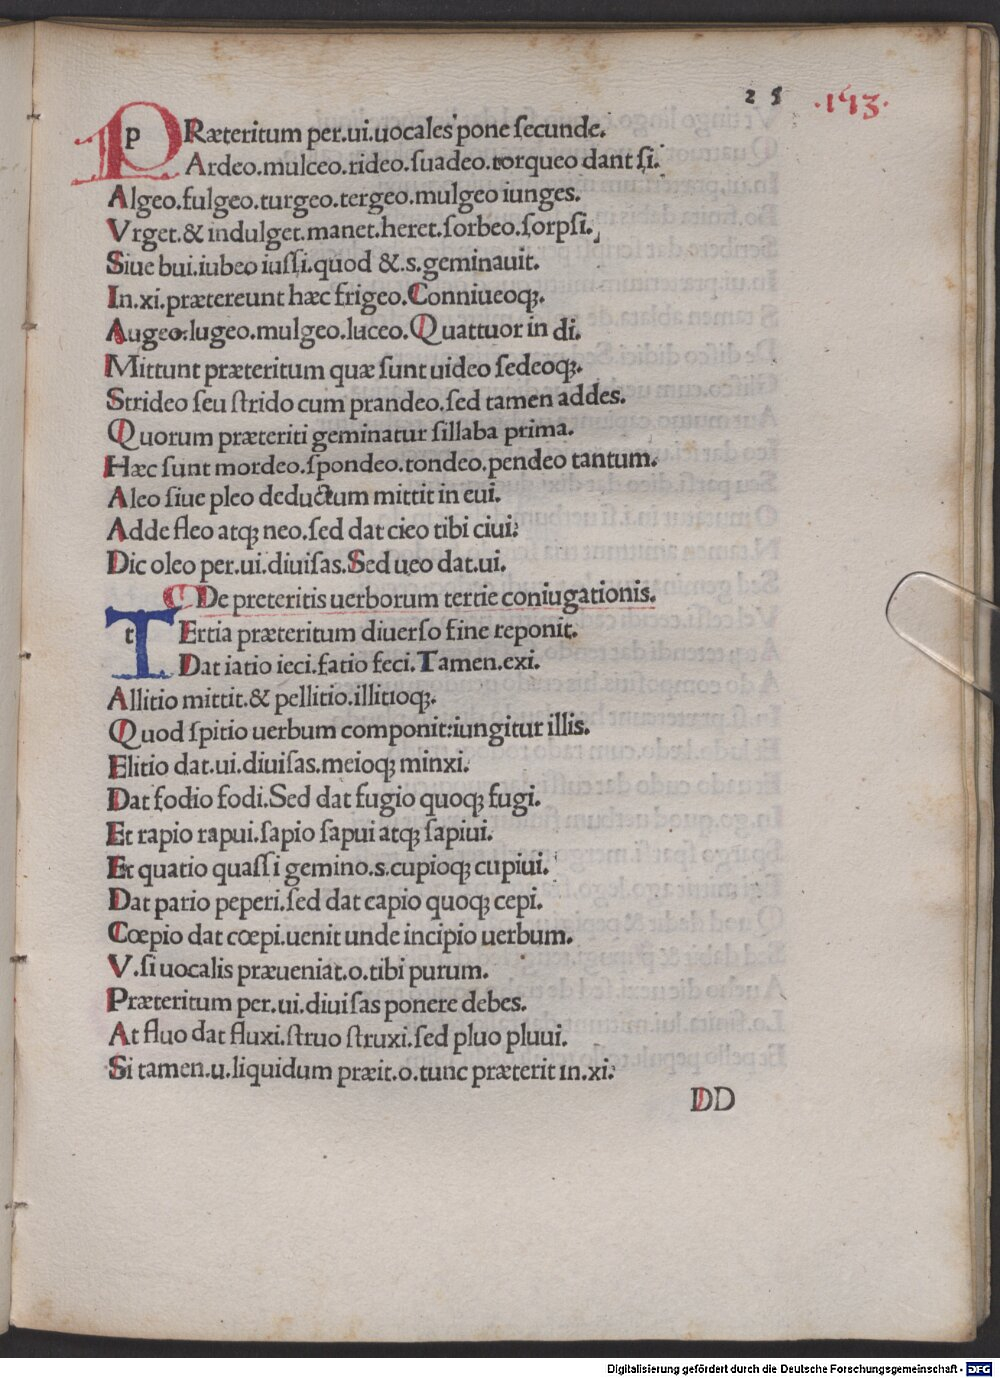 25 .193.
PRæteritum per.ui.uocales pone ſecunde.
Ardeo.mulceo.rideo.ſuadeo.torqueo dant ſi.
Algeo.fulgeo.turgeo.tergeo.mulgeo iunges.
Vrget.& indulget.manet.heret.ſorbeo.ſorpſi.
Siue bui.iubeo iuſſi.quod &.s.geminauit.
In.xi.prætereunt hæc frigeo.Conniueoqꝫ.
Augeo.lugeo.mulgeo.luceo.Quattuor in di.
Mittunt præteritum quæ ſunt uideo ſedeoqꝫ.
Strideo ſeu ſtrido cum prandeo.ſed tamen addes.
Quorum præteriti geminatur ſillaba prima.
Hæc ſunt mordeo.ſpondeo.tondeo.pendeo tantum.
Aleo ſiue pleo deductum mittit in eui.
Adde fleo atqꝫ neo.ſed dat cieo tibi ciui:
Dic oleo per.ui.diuiſas.Sed ueo dat.ui.
De preteritis uerborum tertie coniugationis.
TErtia præteritum diuerſo fine reponit.
Dat iatio ieci.fatio feci.Tamen.exi.
Allitio mittit.& pellitio.illitioqꝫ.
Quod ſpitio uerbum componit:iungitur illis.
Elitio dat.ui.diuiſas.meioqꝫ minxi.
Dat fodio fodi.Sed dat fugio quoqꝫ fugi.
Et rapio rapui.ſapio ſapui atqꝫ ſapiui.
Et quatio quaſſi gemino.s.cupioqꝫ cupiui.
Dat pario peperi.ſed dat capio quoqꝫ cepi.
Cœpio dat cœpi.uenit unde incipio uerbum.
V.ſi uocalis præueniat.o.tibi purum.
Præteritum per.ui.diuiſas ponere debes.
At fluo dat fluxi.ſtruo ſtruxi.ſed pluo pluui.
Si tamen.u.liquidum præit.o.tunc præterit in.xi:
DD
Digitalisierung gefördert durch die Deutsche Forschungsgemeinschaft - DFG